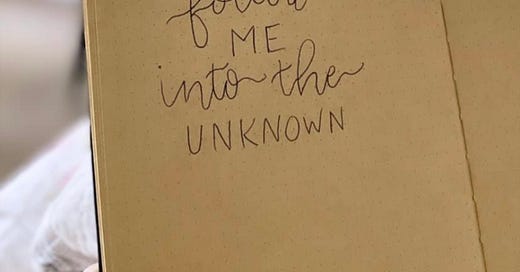 follow
ME
into the
UNKNOWN